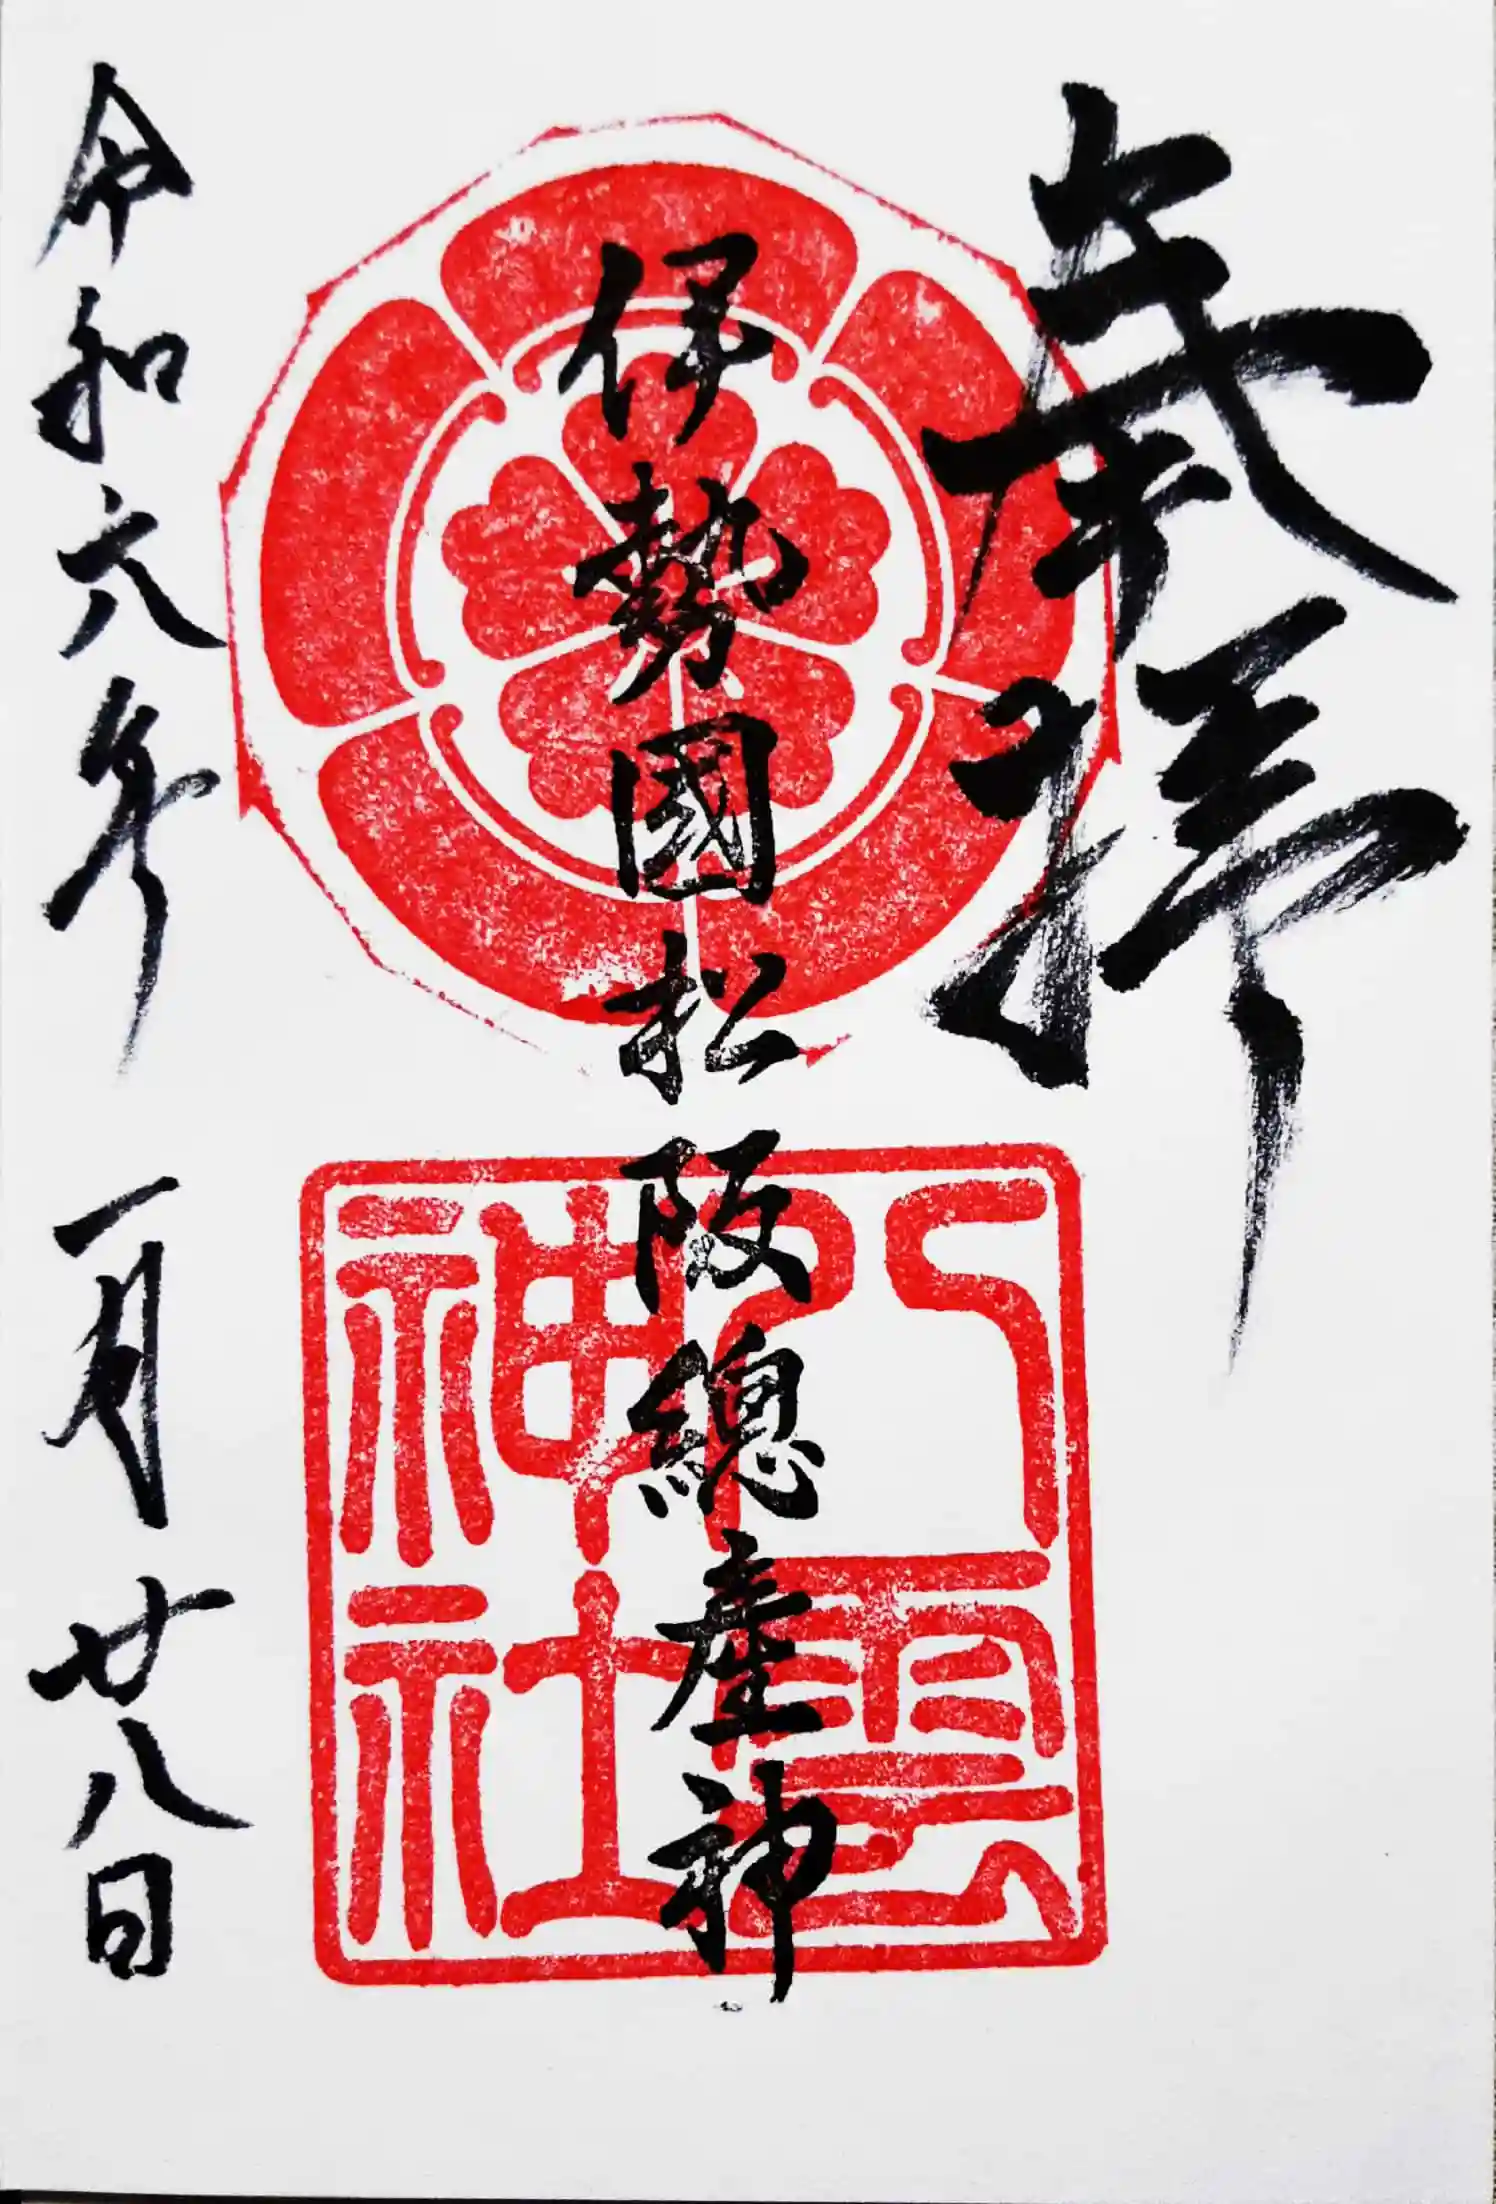 奉拝
伊勢國松阪總産神
八雲
神社
令和六年 一月廿八日